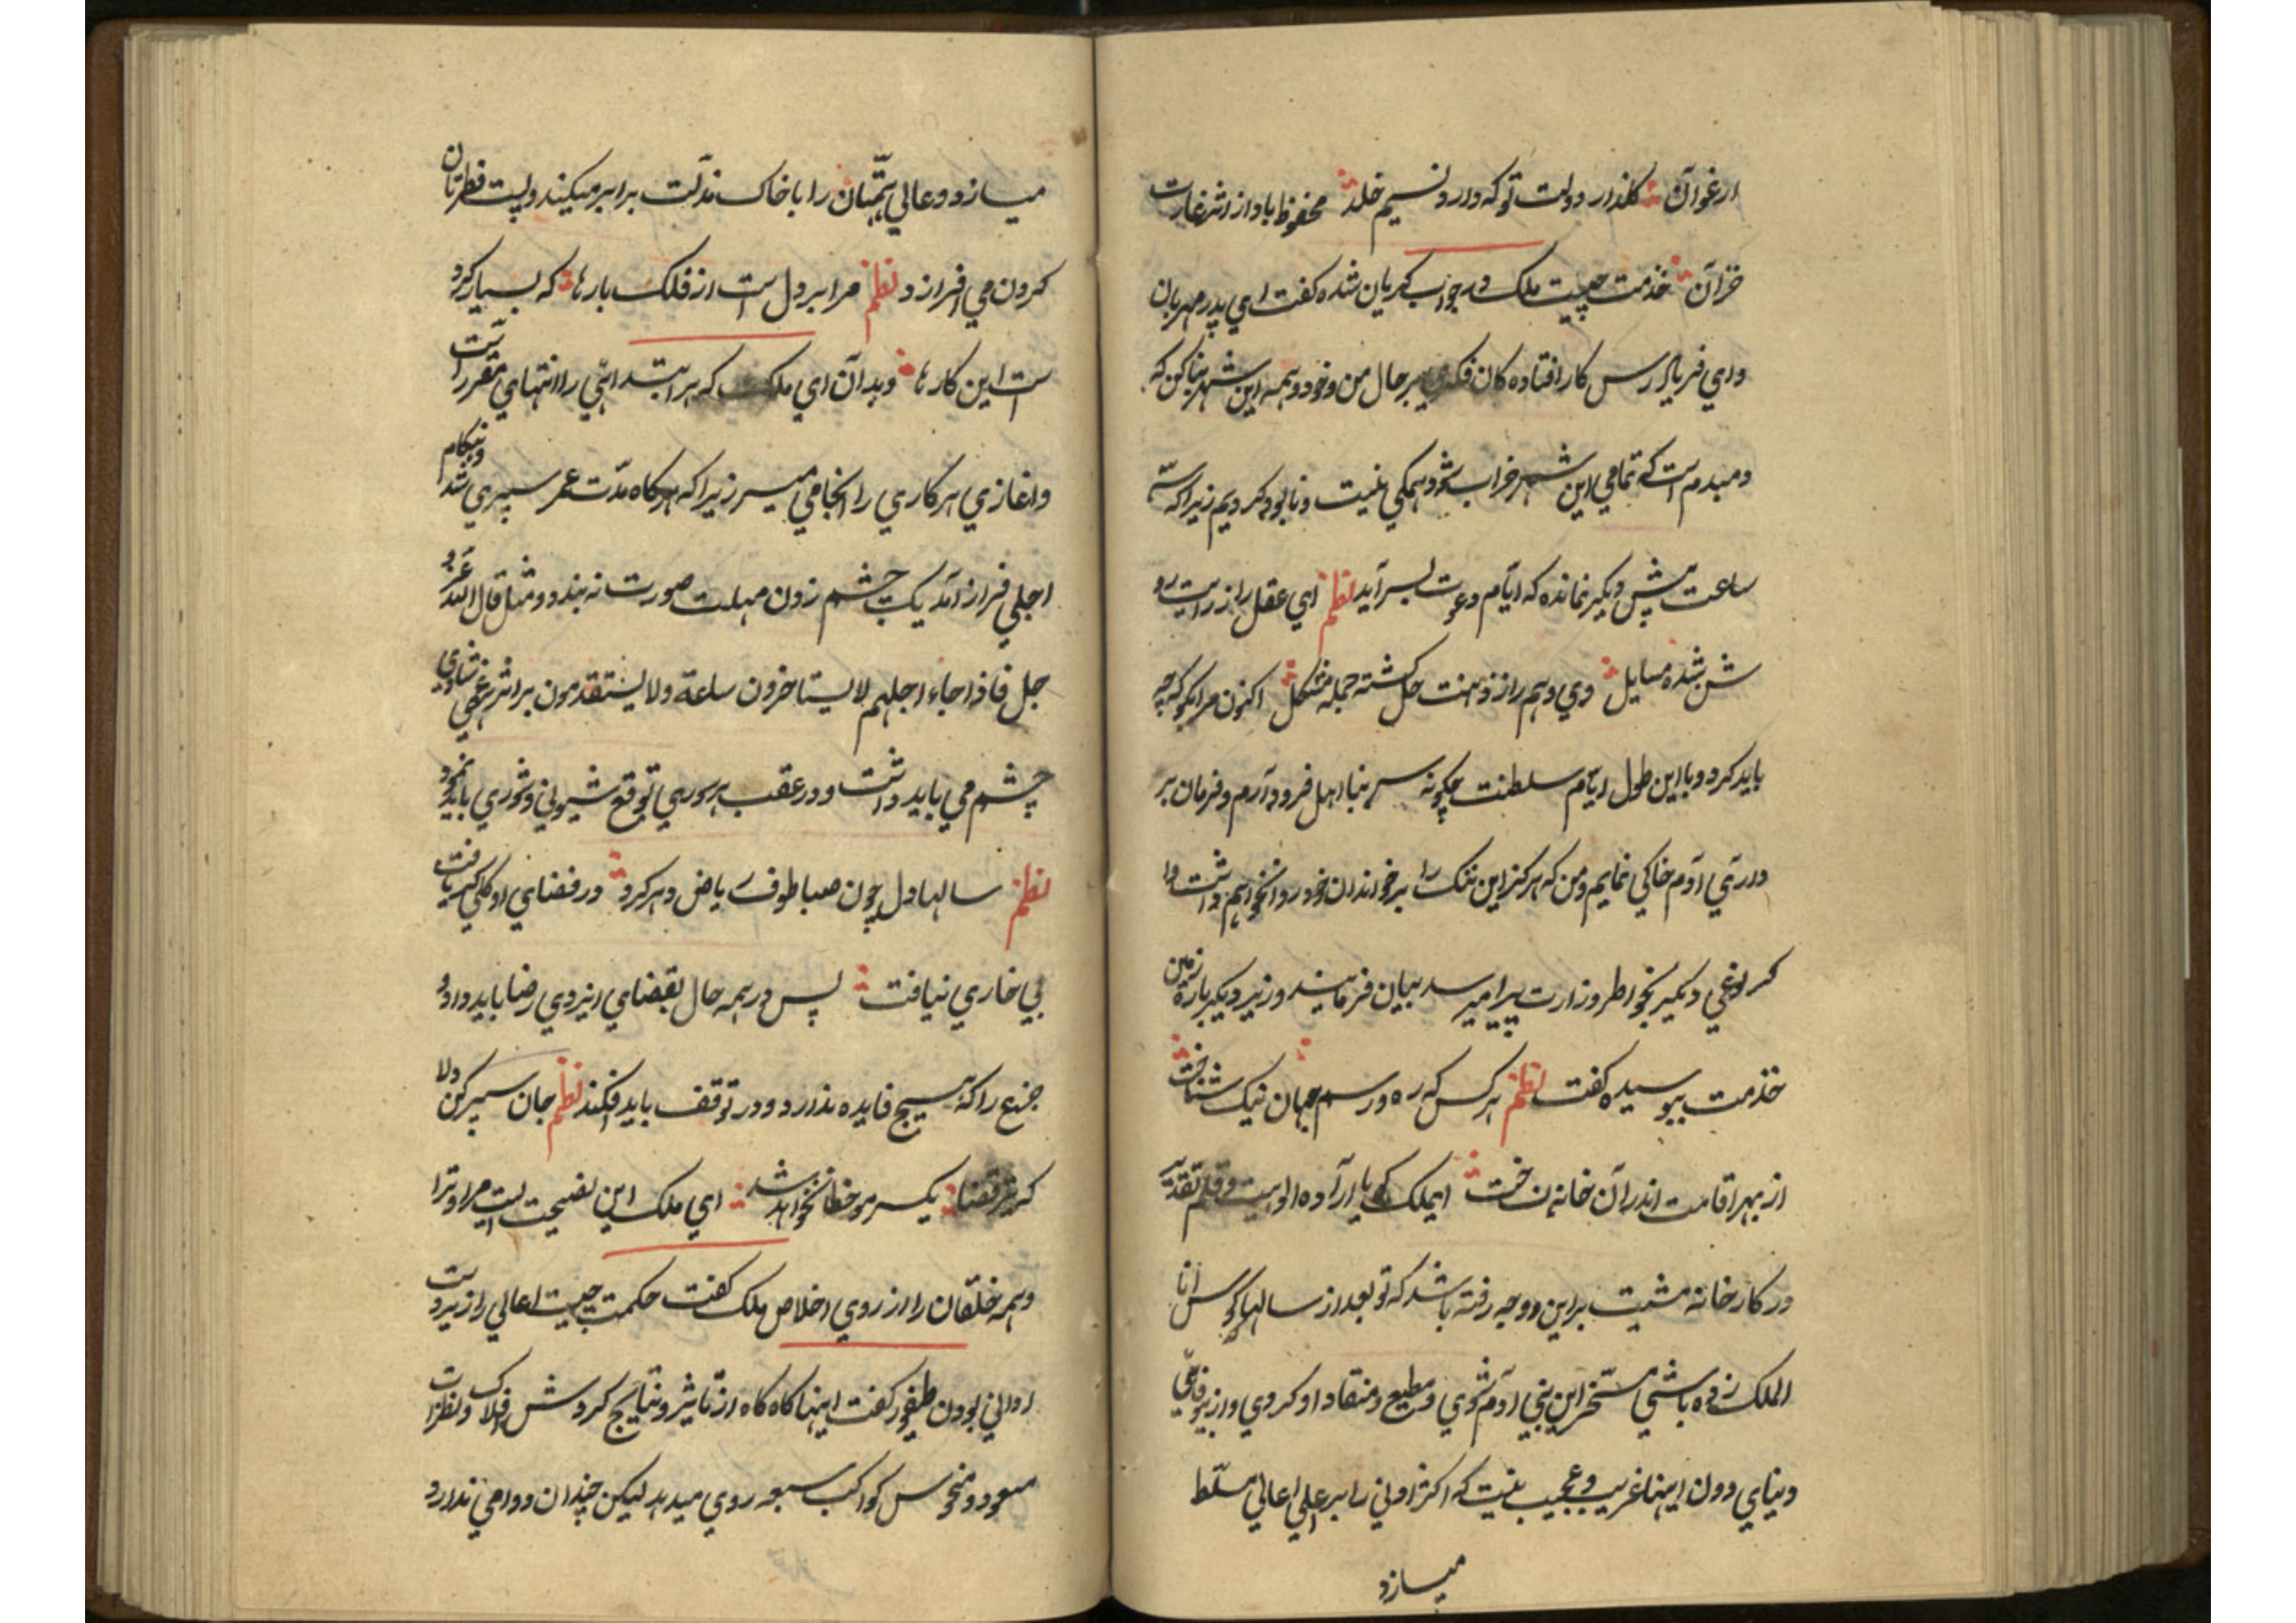 ارغوان گلذار دولت تو که دارد نسیم خلد محفوظ باد از اثر غارت
خزان خدمت چیست ملک در جواب گریان شده گفت ای پدر مهربان
وای فریاد رس کار افتاده کان فکری بر حال من و خود و همه این شهر بنا کن که
دمبدم است که تمامی این شهر خراب شود همکی نیست و نابود کردیم زیرا که سه
ساعت پیش دیگر نمانده که ایام دعوت بسر آید نظم ای عقل را ز رایت رو
شن شده مسایل وی وهم را ز ذهنت حل گشته جمله مشکل اکنون مرا بگو که چه
باید کرد و با این طول ایام سلطنت چگونه سر بنا اهل فرود آرم و فرمان بر
داری آدم خاکی نمایم و من که هرگز این ننک را بر خواندان خود روا نخواهم داشت وا
کر لوغی دیگر بخواطر وزارت پیرامیرسد بیان فرمایند وزیر دیگر باره زمین
خدمت ببوسیده گفت نظم هر کس که ره و رسم جهان نیک شناخت
از بهر اقامت اندر آن خانه نساخت ای ملک اراده الو‌هیت و قلم تقدیر
در کارخانه مشیت بر این دو وجه رفته باشد که تو بعد از سالها کوس انا
الملک زده باشی مسخر این بنی آدم شوی و مطیع و منقاد او گردی و از بیوفائی
دنیای دون اینها غریب و عجیب نیست که اکثر ادنی را بر اعلی اعالی مسلط
میسازد
میسازد و عالی همتان را با خاک مذلت برابر میکند و پست فطرتان
گردن می افرازد نظم مرا بر دل است از فلک بارها که بسیار کرد
ست این کارها و بدان ای ملک که هر ابتدائی را انتهای مقرر است
و اغازی هر کاری را انجامی میسر زیرا که هرگاه مدت عمر سپری شد و هنگام
اجلی فراز آمد یک چشم زدن مهلت صورت نه بندد و مثل قال الله عز و
جل فاذا جاء اجلهم لا یستاخرون ساعة ولا یستقدمون بر اثر هر غمی شادی
چشم می باید داشت و در عقب هر سوری توقع شیونی و شوری باید نمود
نظم سالها دل چون صبا طوف ریاض دهر کرد در فضای او گلی کم یافت
بی خاری نیافت پس در همه حال بقضای ایزدی رضا باید داد و
جزع را که هیچ فایده ندارد و در توقف باید فکند نظم جان سپر کن دلا
که تیر قضا یکسر مو خطا نخواهد شد ای ملک این نصیحت است مر او ترا
و همه خلقان را از روی اخلاص ملک گفت حکمت چیست اعالی را زیردست
ادانی بودن طیفور گفت اینها گاه گاه از تاثیر و نتایج گردش افلاک و نظرات
سعود و منحوس کواکب سبعه روی میدهد لیکن چندان دوامی ندارد